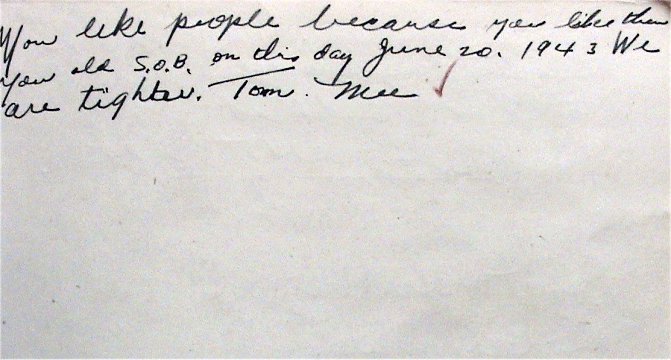 You like people because you like them
You old S.O.B. on this day June 20. 1943 We
are tighter. Tom. Mee